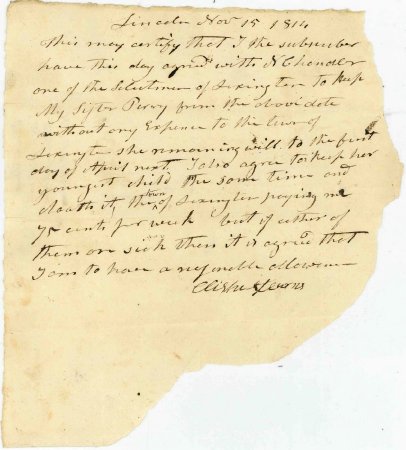 Lincoln Nov 15 1814
This may certify that I the subscriber
have this day agreed with N Chandler
one of the Selectmen of Lexington to keep
My Sister Perry from the above date
without any Expence to the town of
Lexington she remaining well to the first
day of April next I also agree to keep her
youngest child the same time and
cloath it the town of Lexington paying me
75 cents per week but if either of
them are sick then it is agreed that
I am to have a resonable allowance
Elisha